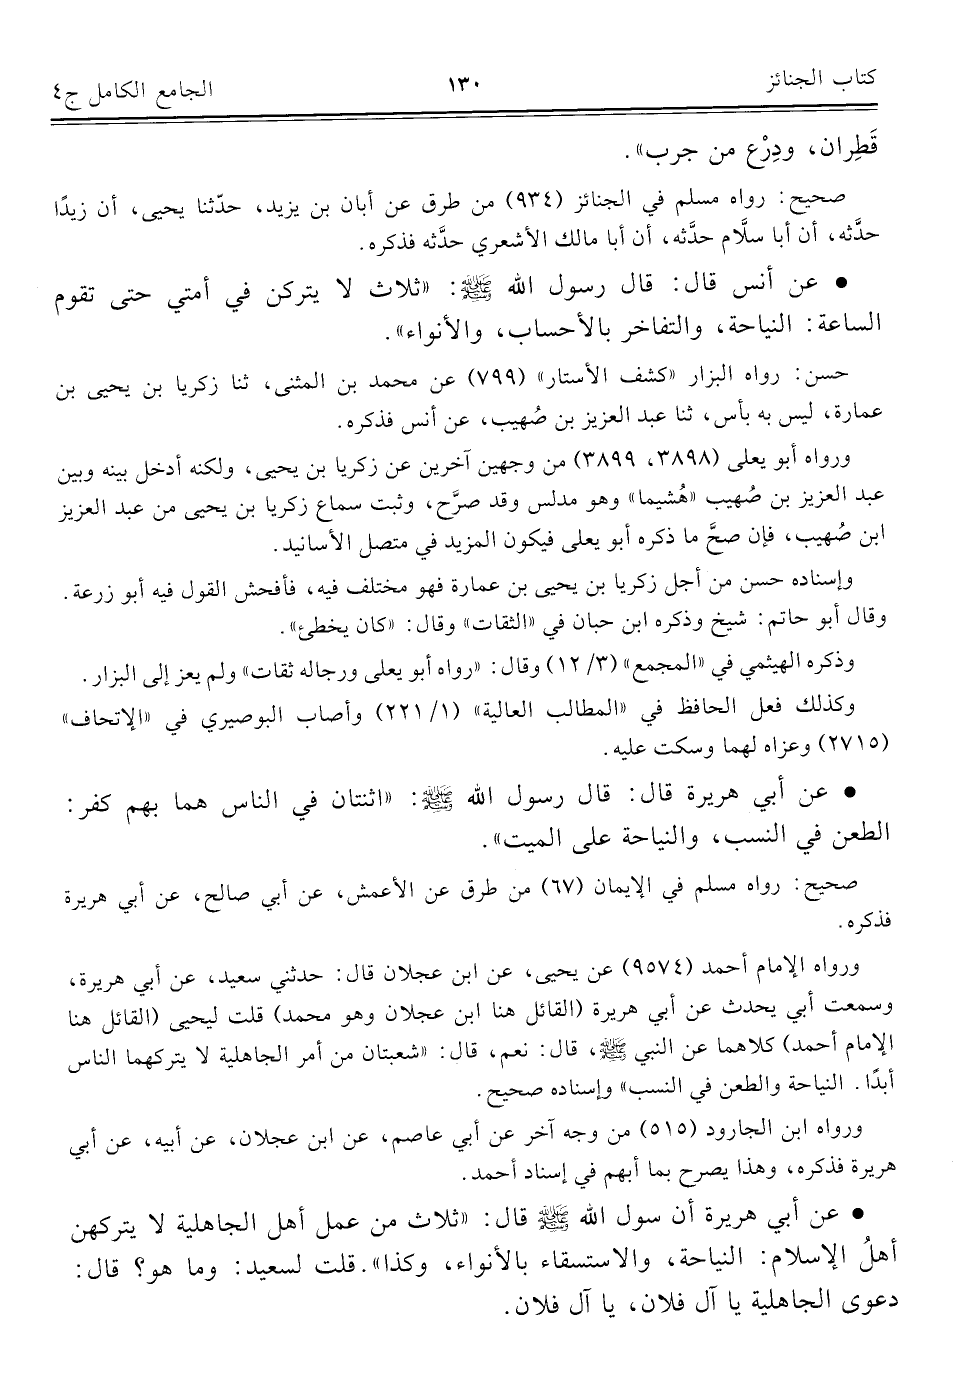 كتاب الجنائز ١٣٠ الجامع الكامل ج٤
قَطِران، ودِرْع من جرب».
صحيح: رواه مسلم في الجنائز (٩٣٤) من طرق عن أبان بن يزيد، حدّثنا يحيى، أن زيدًا
حدَّثه، أن أبا سلَّام حدَّثه، أن أبا مالك الأشعري حدَّثه فذكره.
• عن أنس قال: قال رسول الله ﷺ: «ثلاث لا يتركن في أمتي حتى تقوم
الساعة: النياحة، والتفاخر بالأحساب، والأنواء».
حسن: رواه البزار «كشف الأستار» (٧٩٩) عن محمد بن المثنى، ثنا زكريا بن يحيى بن
عمارة، ليس به بأس، ثنا عبد العزيز بن صُهيب، عن أنس فذكره.
ورواه أبو يعلى (٣٨٩٨، ٣٨٩٩) من وجهين آخرين عن زكريا بن يحيى، ولكنه أدخل بينه وبين
عبد العزيز بن صُهيب «هُشيما» وهو مدلس وقد صرَّح، وثبت سماع زكريا بن يحيى من عبد العزيز
ابن صُهيب، فإن صحَّ ما ذكره أبو يعلى فيكون المزيد في متصل الأسانيد.
وإسناده حسن من أجل زكريا بن يحيى بن عمارة فهو مختلف فيه، فأفحش القول فيه أبو زرعة.
وقال أبو حاتم: شيخ وذكره ابن حبان في «الثقات» وقال: «كان يخطئ».
وذكره الهيثمي في «المجمع» (٣/ ١٢) وقال: «رواه أبو يعلى ورجاله ثقات» ولم يعز إلى البزار.
وكذلك فعل الحافظ في «المطالب العالية» (١/ ٢٢١) وأصاب البوصيري في «الإتحاف»
(٢٧١٥) وعزاه لهما وسكت عليه.
• عن أبي هريرة قال: قال رسول الله ﷺ: «اثنتان في الناس هما بهم كفر:
الطعن في النسب، والنياحة على الميت».
صحيح: رواه مسلم في الإيمان (٦٧) من طرق عن الأعمش، عن أبي صالح، عن أبي هريرة
فذكره.
ورواه الإمام أحمد (٩٥٧٤) عن يحيى، عن ابن عجلان قال: حدثني سعيد، عن أبي هريرة،
وسمعت أبي يحدث عن أبي هريرة (القائل هنا ابن عجلان وهو محمد) قلت ليحيى (القائل هنا
الإمام أحمد) كلاهما عن النبي ﷺ، قال: نعم، قال: «شعبتان من أمر الجاهلية لا يتركهما الناس
أبدًا. النياحة والطعن في النسب» وإسناده صحيح.
ورواه ابن الجارود (٥١٥) من وجه آخر عن أبي عاصم، عن ابن عجلان، عن أبيه، عن أبي
هريرة فذكره، وهذا يصرح بما أبهم في إسناد أحمد.
• عن أبي هريرة أن سول الله ﷺ قال: «ثلاث من عمل أهل الجاهلية لا يتركهن
أهلُ الإسلام: النياحة، والاستسقاء بالأنواء، وكذا». قلت لسعيد: وما هو؟ قال:
دعوى الجاهلية يا آل فلان، يا آل فلان.